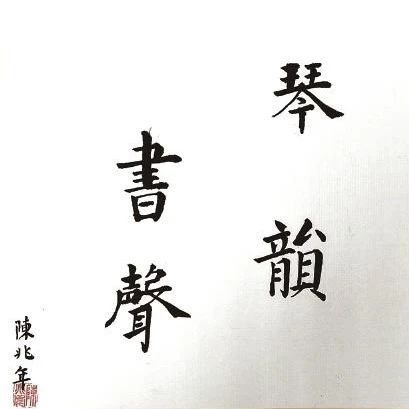 琴韻
書聲
陳兆年